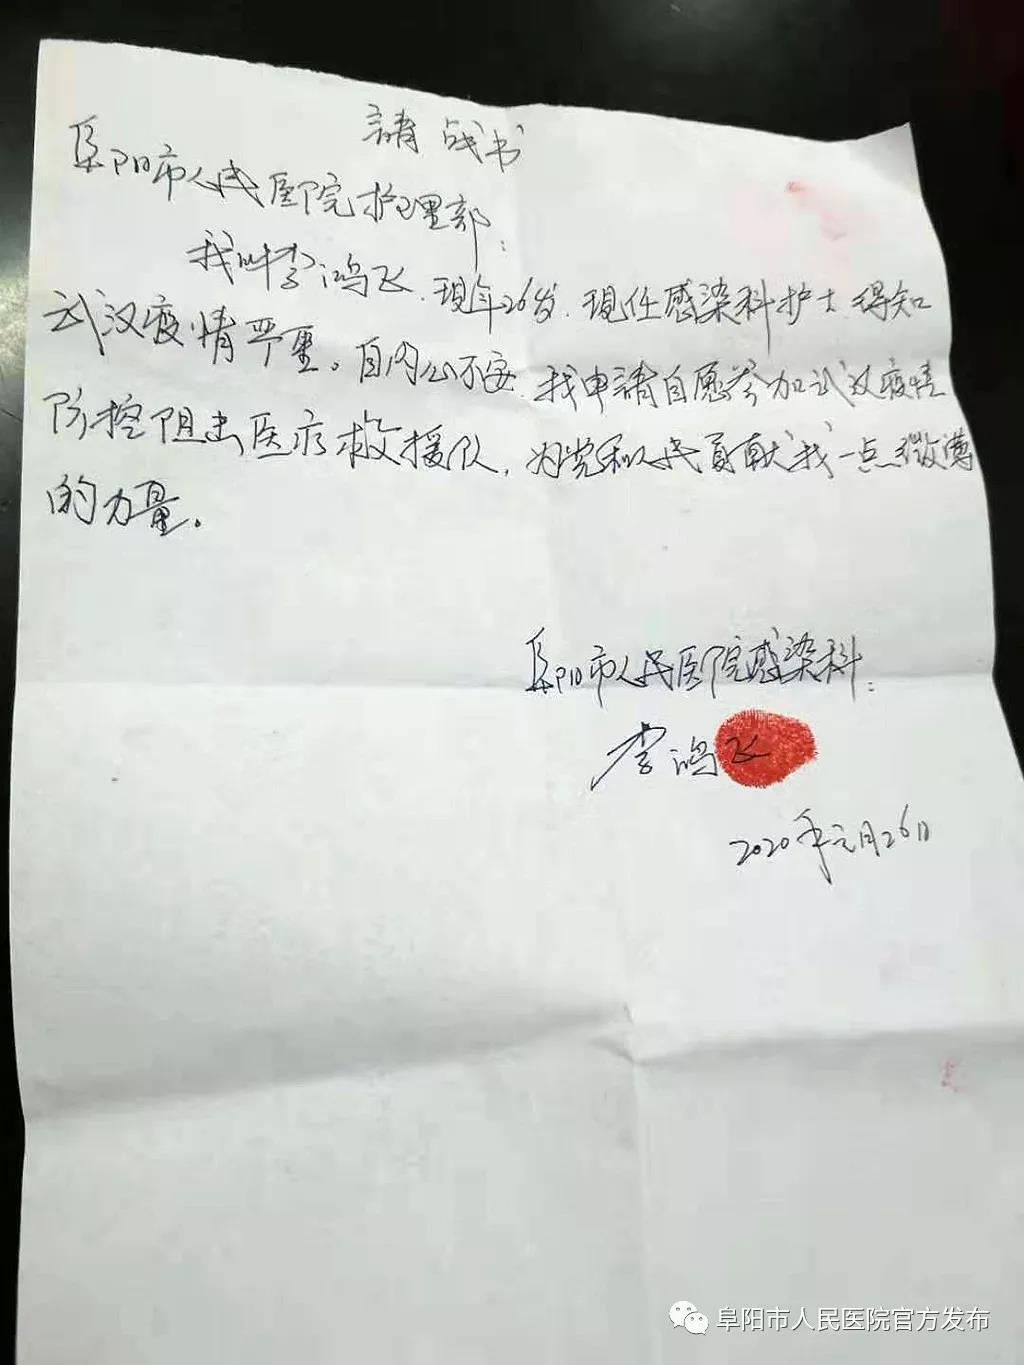 請战书
阜阳市人民医院护理部：
我叫李鸿飞，现年26岁，现任感染科护士，得知
武汉疫情严重。自内心不安，我申請自愿参加武汉疫情
防控阻击医疗救援队，为党和人民贡献我一点微薄
的力量。
阜阳市人民医院感染科：
李鸿飞
2020年元月26日
阜阳市人民医院官方发布